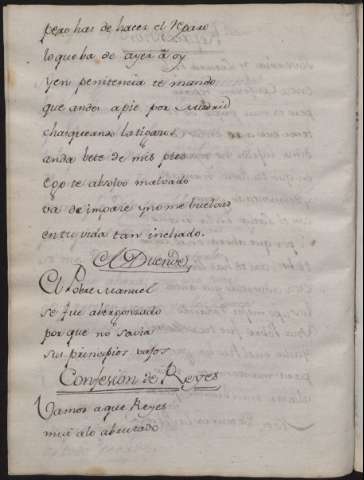 pero has de hacer el reparo
lo que ba de ayer à oy
y en penitencia te mando
que andes apie por Madrid
chasqueando latigazos
anda bete de mis pies
Ego te absolvo malvado
va de impare y no me buelvas
en tu vida tan inchado.
El Duende,
El Pobre Manuel
se fue abergonzado
por que no savia
sus principios vajos
Confesion de Reyes
Vamos aque Reyes
mui alo